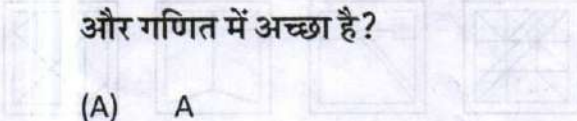 और गणित में अच्छा है?
(A) A